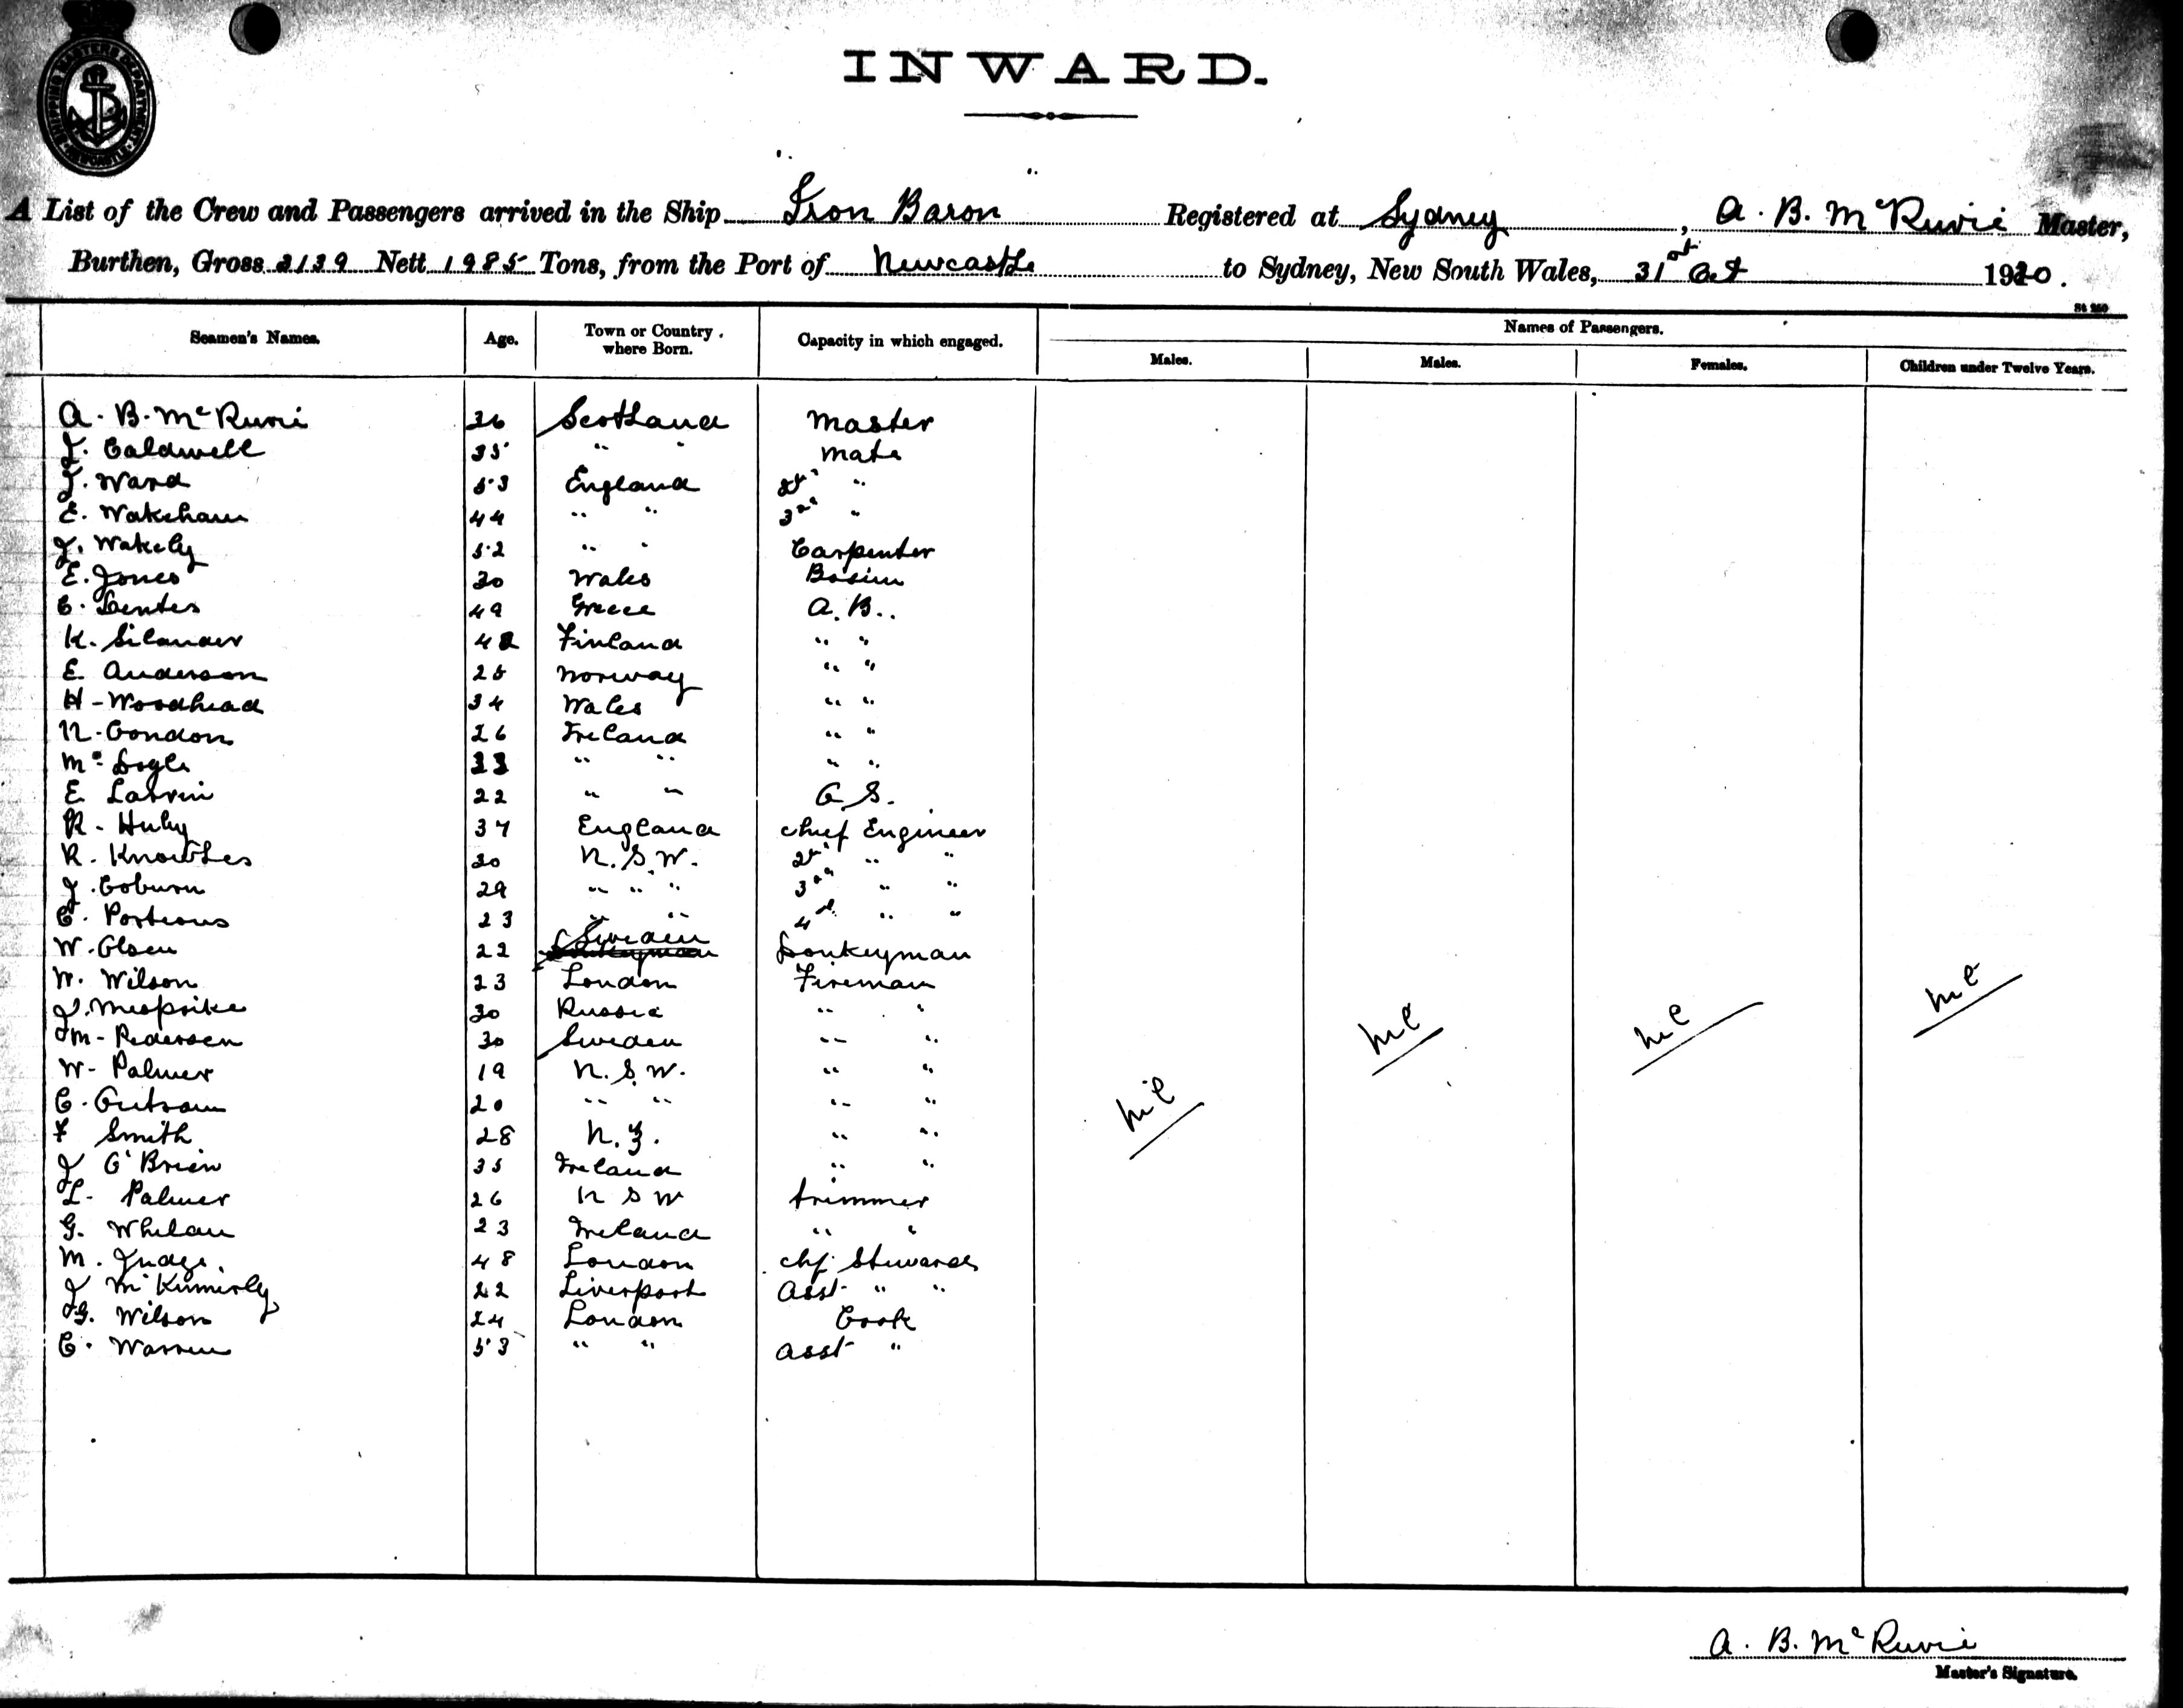 SHIPPING MASTERS DEPARTMENT NEWCASTLE
INWARD.
A List of the Crew and Passengers arrived in the Ship Iron Baron Registered at Sydney, A. B. McRuvie Master,
Burthen, Gross 3139 Nett 1985 Tons, from the Port of Newcastle to Sydney, New South Wales, 31st Oct 1920.
St 250
Seamen's Names. Age. Town or Country where Born. Capacity in which engaged. Names of Passengers.
Males. Males. Females. Children under Twelve Years.
A. B. McRuvie 36 Scotland Master
J. Caldwell 35 " " Mate
J. Ward 53 England 2nd "
E. Wakeham 44 " " 3rd "
J. Wakely 52 " " Carpenter
E. Jones 30 Wales Bosun
C. Lentes 49 Greece A.B..
K. Silander 42 Finland " "
E. Anderson 25 Norway " "
H - Woodhead 34 Wales " "
N. Condon 26 Ireland " "
Mc Doyle 33 " " " "
E Larvin 22 " " O.S.
R. Huby 37 England Chief Engineer
R. Knowles 30 N.S.W. 2nd " "
J. Coburn 29 " " " 3rd " "
C. Porteous 23 " " 4th " "
W. Olsen 22 Sweden Donkeyman
W. Wilson 23 London Fireman
J. 30 Russia " "
M - Pedersen 30 Sweden " "
W - Palmer 19 N.S.W. " "
C. 20 " " " "
F Smith 28 N.Z. " "
J O'Brien 35 Ireland " "
L. Palmer 26 N S W trimmer
G. Whelan 23 Ireland " "
M. Judge. 48 London chf. Steward
J 22 Liverpool Asst. " "
G. Wilson 24 London Cook
C. Warren 53 " " Asst "
nil nil nil nil
A. B. McRuvie
Master's Signature.